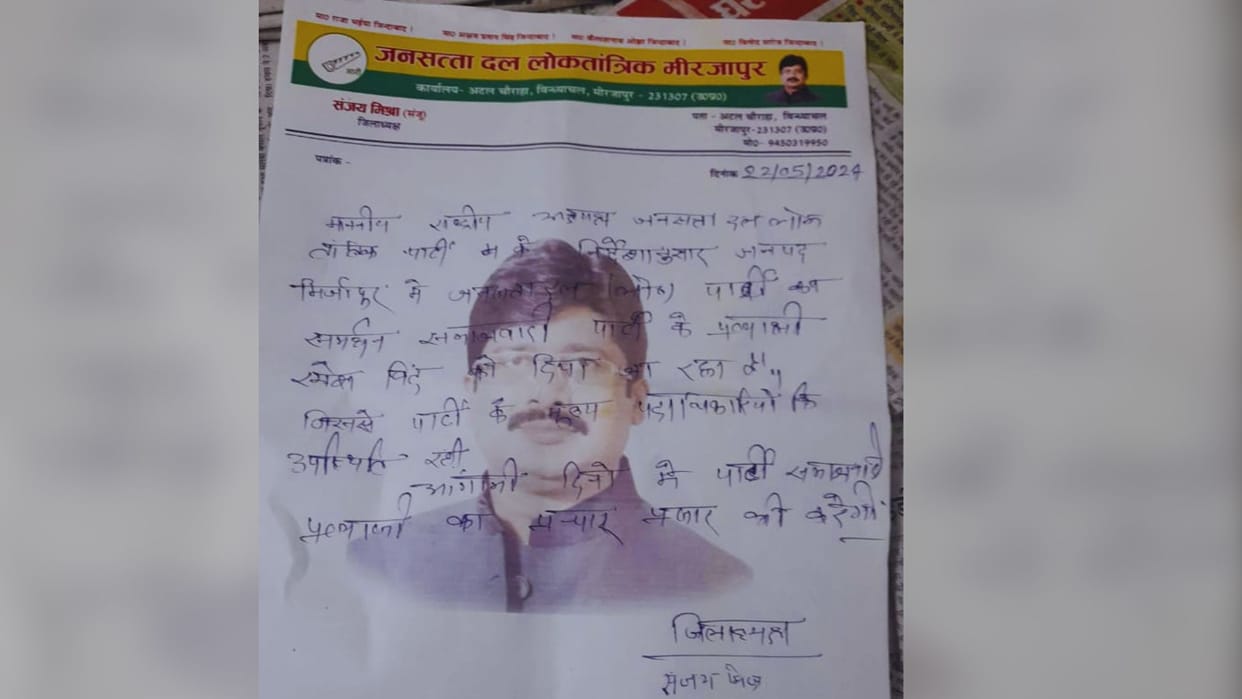 मा0 राजा भईया जिन्दाबाद !
मा0 अक्षय प्रताप सिंह जिन्दाबाद !
मा0 विनोद सरोज जिन्दाबाद !
जनसत्ता दल लोकतांत्रिक मीरजापुर
कार्यालय- अटल चौराहा, विन्ध्याचल, मीरजापुर - 231307 (उ0प्र0)
संजय मिश्रा (मंजू)
जिलाध्यक्ष
पता - अटल चौराहा, विन्ध्याचल
मीरजापुर-231307 (उ0प्र0)
मो0- 9450319950
पत्रांक -
दिनांक 22/05/2024
माननीय राष्ट्रीय अध्यक्ष जनसत्ता दल लोक
तांत्रिक पार्टी के निर्देशानुसार जनपद
मिर्जापुर मे जनसत्तादल (लो0) पार्टी का
समर्थन समाजवादी पार्टी के प्रत्याशी
रमेश विंद को दिया जा रहा है"
जिसमे पार्टी के मुख्य पदाधिकारियों कि
उपस्थिति रही
आगामी दिनो मे पार्टी समाजवादी
प्रत्याशी का प्रचार प्रसार भी करेगी
जिलाध्यक्ष
संजय मिश्र